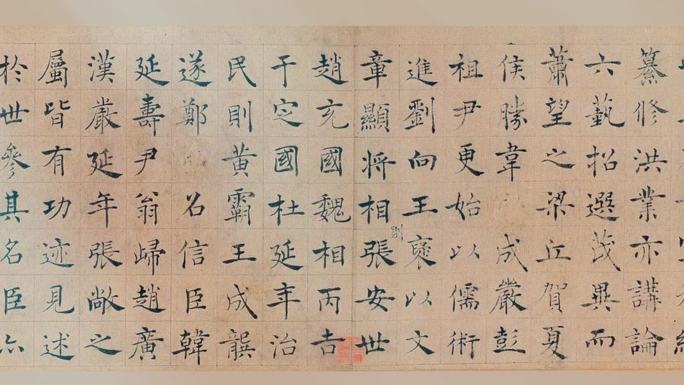 纂修洪業亦講論
六藝招選茂異而
蕭望之梁丘賀夏
侯勝韋 成嚴彭
祖尹更始以儒術
進劉向王褒以文
章顯將相張安世
趙充國魏相丙吉
于定國杜延年治
民則黃霸王成龔
遂鄭 召信臣韓
延壽尹翁歸趙廣
漢嚴延年張敞之
屬皆有功迹見述
於世參其名臣亦